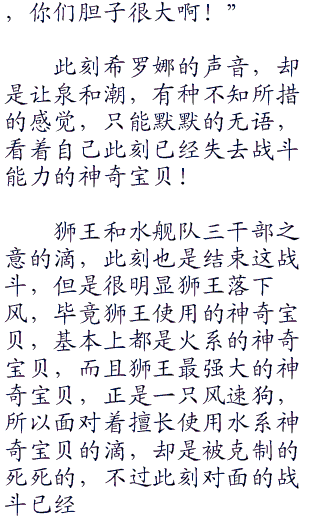 ，你们胆子很大啊！”
此刻希罗娜的声音，却
是让泉和潮，有种不知所措
的感觉，只能默默的无语，
看着自己此刻已经失去战斗
能力的神奇宝贝！
狮王和水舰队三干部之
意的滴，此刻也是结束这战
斗，但是很明显狮王落下
风，毕竟狮王使用的神奇宝
贝，基本上都是火系的神奇
宝贝，而且狮王最强大的神
奇宝贝，正是一只风速狗，
所以面对着擅长使用水系神
奇宝贝的滴，却是被克制的
死死的，不过此刻对面的战
斗已经